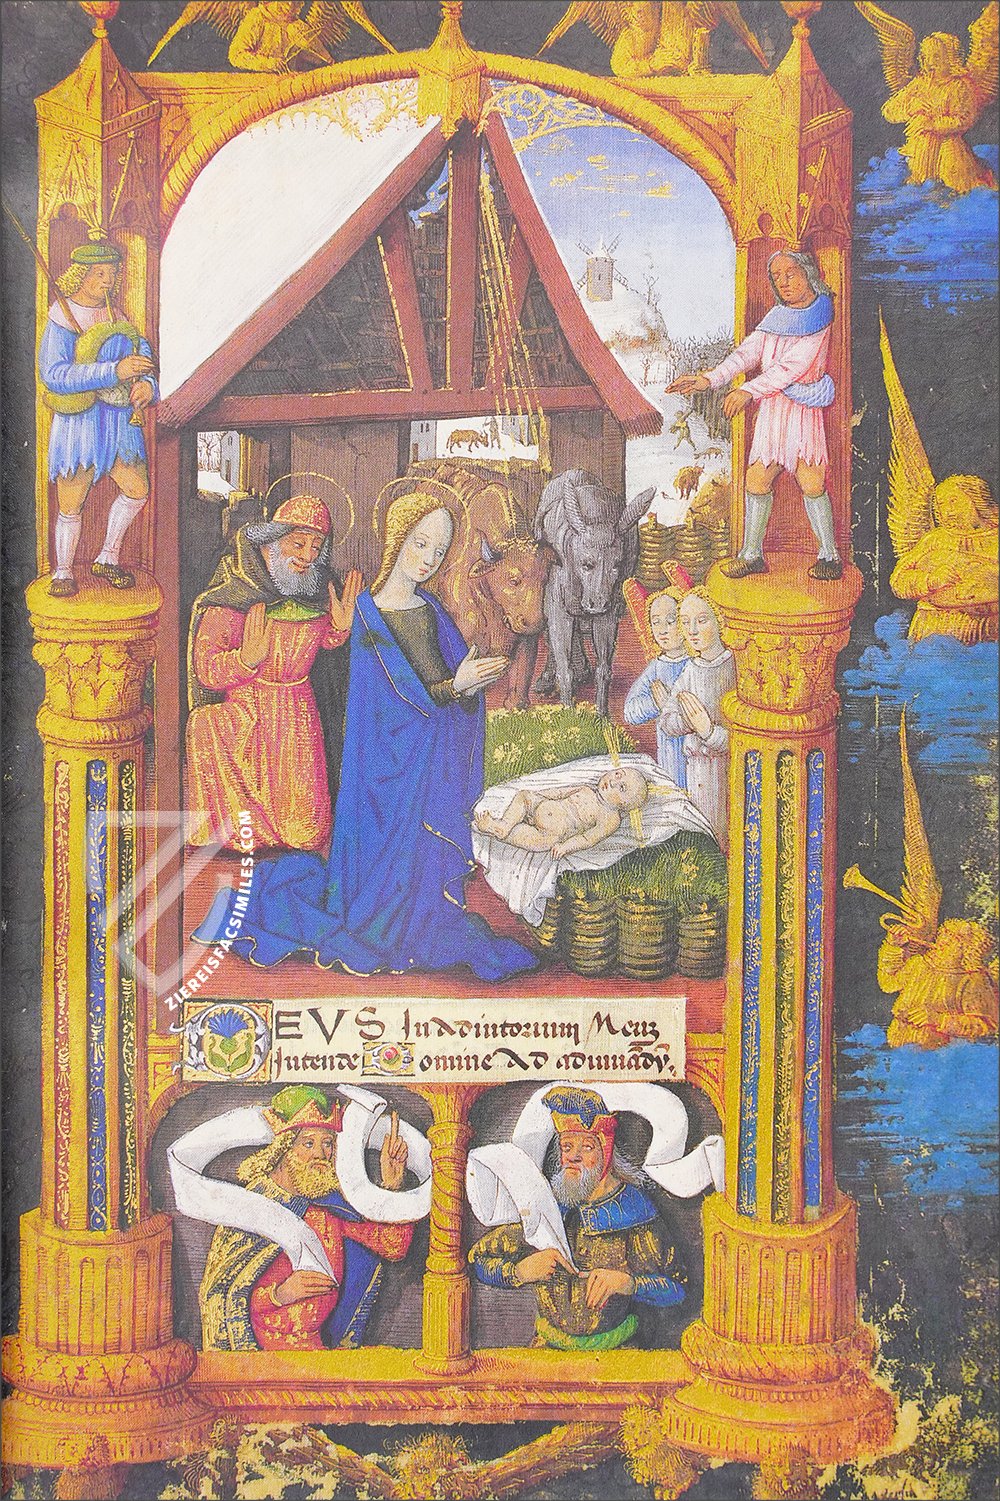 DEVS In Adiutorium Meuz
Intende Domine Ad adiuuadū.
ZIEREISFACSIMILES.COM